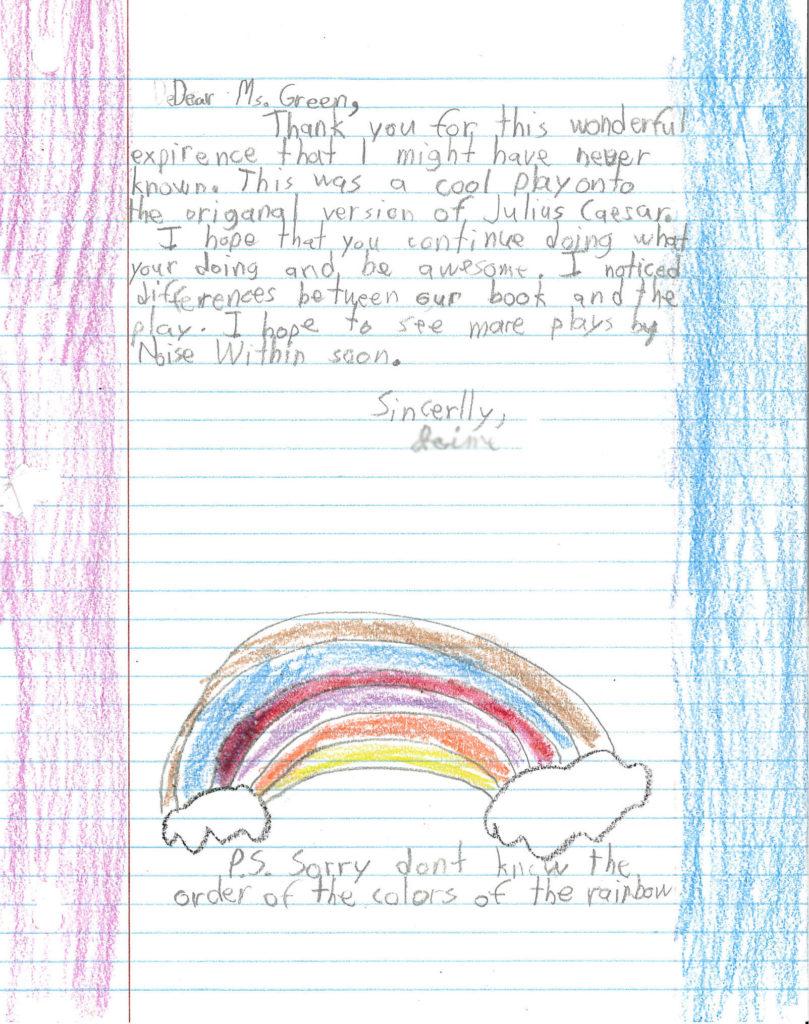 Dear Ms. Green,
Thank you for this wonderful
expirence that I might have never
known. This was a cool play onto
the origanal version of Julius Caesar.
I hope that you continue doing what
your doing and be awesome. I noticed
differences between our book and the
play. I hope to see more plays by
Noise Within soon.
Sincerlly,
P.S. Sorry dont know the
order of the colors of the rainbow